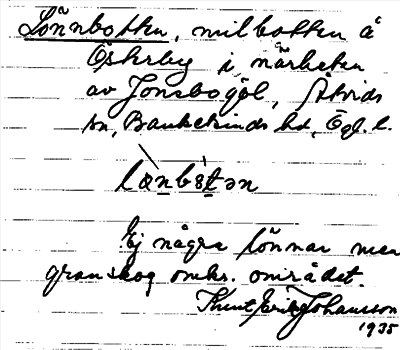 Lönnbotten, milbotten å
Österby i närheten
av Jonsbogöl, Åtvids
sn, Bankekinds hd, Ögl. l.
Ej några lönnar men
granskog omkr. området.
Knut Erik Johansson
1935